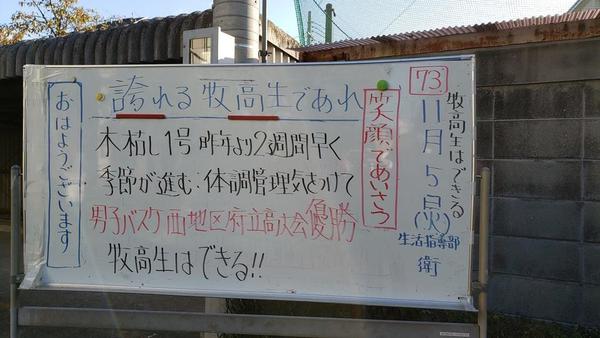 おはようございます
誇れる牧高生であれ
木枯し1号 昨年より2週間早く
季節が進む:体調管理気をつけて
男子バスケ西地区府立高大会優勝
牧高生はできる!!
笑顔であいさつ
73
牧高生はできる
11月5日(火)
生活指導部
衛